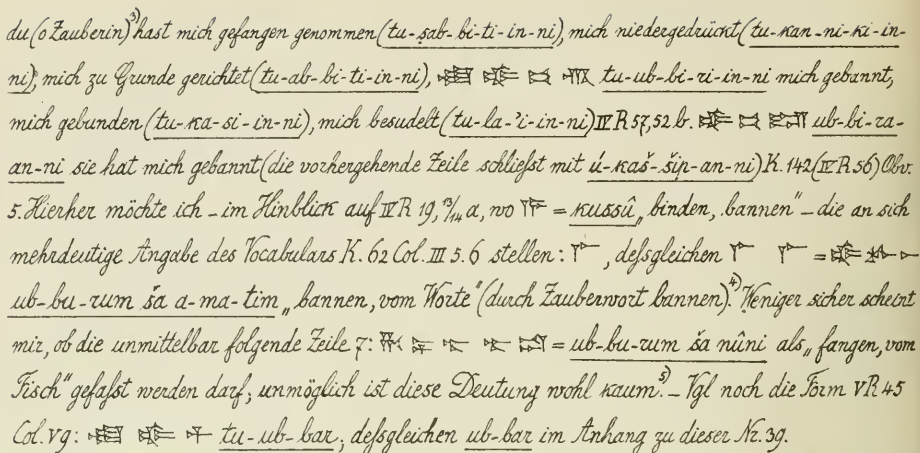 du (o Zauberin)³⁾ hast mich gefangen genommen (tu-ṣab-bi-ti-in-ni), mich niedergedrückt (tu-kan-ni-ki-in-
ni), mich zu Grunde gerichtet (tu-ab-bi-ti-in-ni), tu-ub-bi-ri-in-ni mich gebannt,
mich gebunden (tu-ka-si-in-ni), mich besudelt (tu-la-'i-in-ni) IV R 57, 52 b. ub-bi-ra-
an-ni sie hat mich gebannt (die vorhergehende Zeile schliefst mit ú-kaš-šip-an-ni) K. 142 (IV R 56) Obv.
5. Hierher möchte ich – im Hinblick auf IV R 19, 13/14 a, wo = kussû „binden, bannen“ – die an sich
mehrdeutige Angabe des Vocabulars K. 62 Col. III 5. 6 stellen: , desgleichen =
ub-bu-rum ša a-ma-tim „bannen, vom Worte“ (durch Zauberwort bannen).⁴⁾ Weniger sicher scheint
mir, ob die unmittelbar folgende Zeile 7: = ub-bu-rum ša nûni als „fangen, vom
Fisch“ gefafst werden darf; unmöglich ist diese Deutung wohl kaum.⁵⁾ – Vgl noch die Form V R 45
Col. V 9: tu-ub-bar; desgleichen ub-bar im Anhang zu dieser Nr. 39.